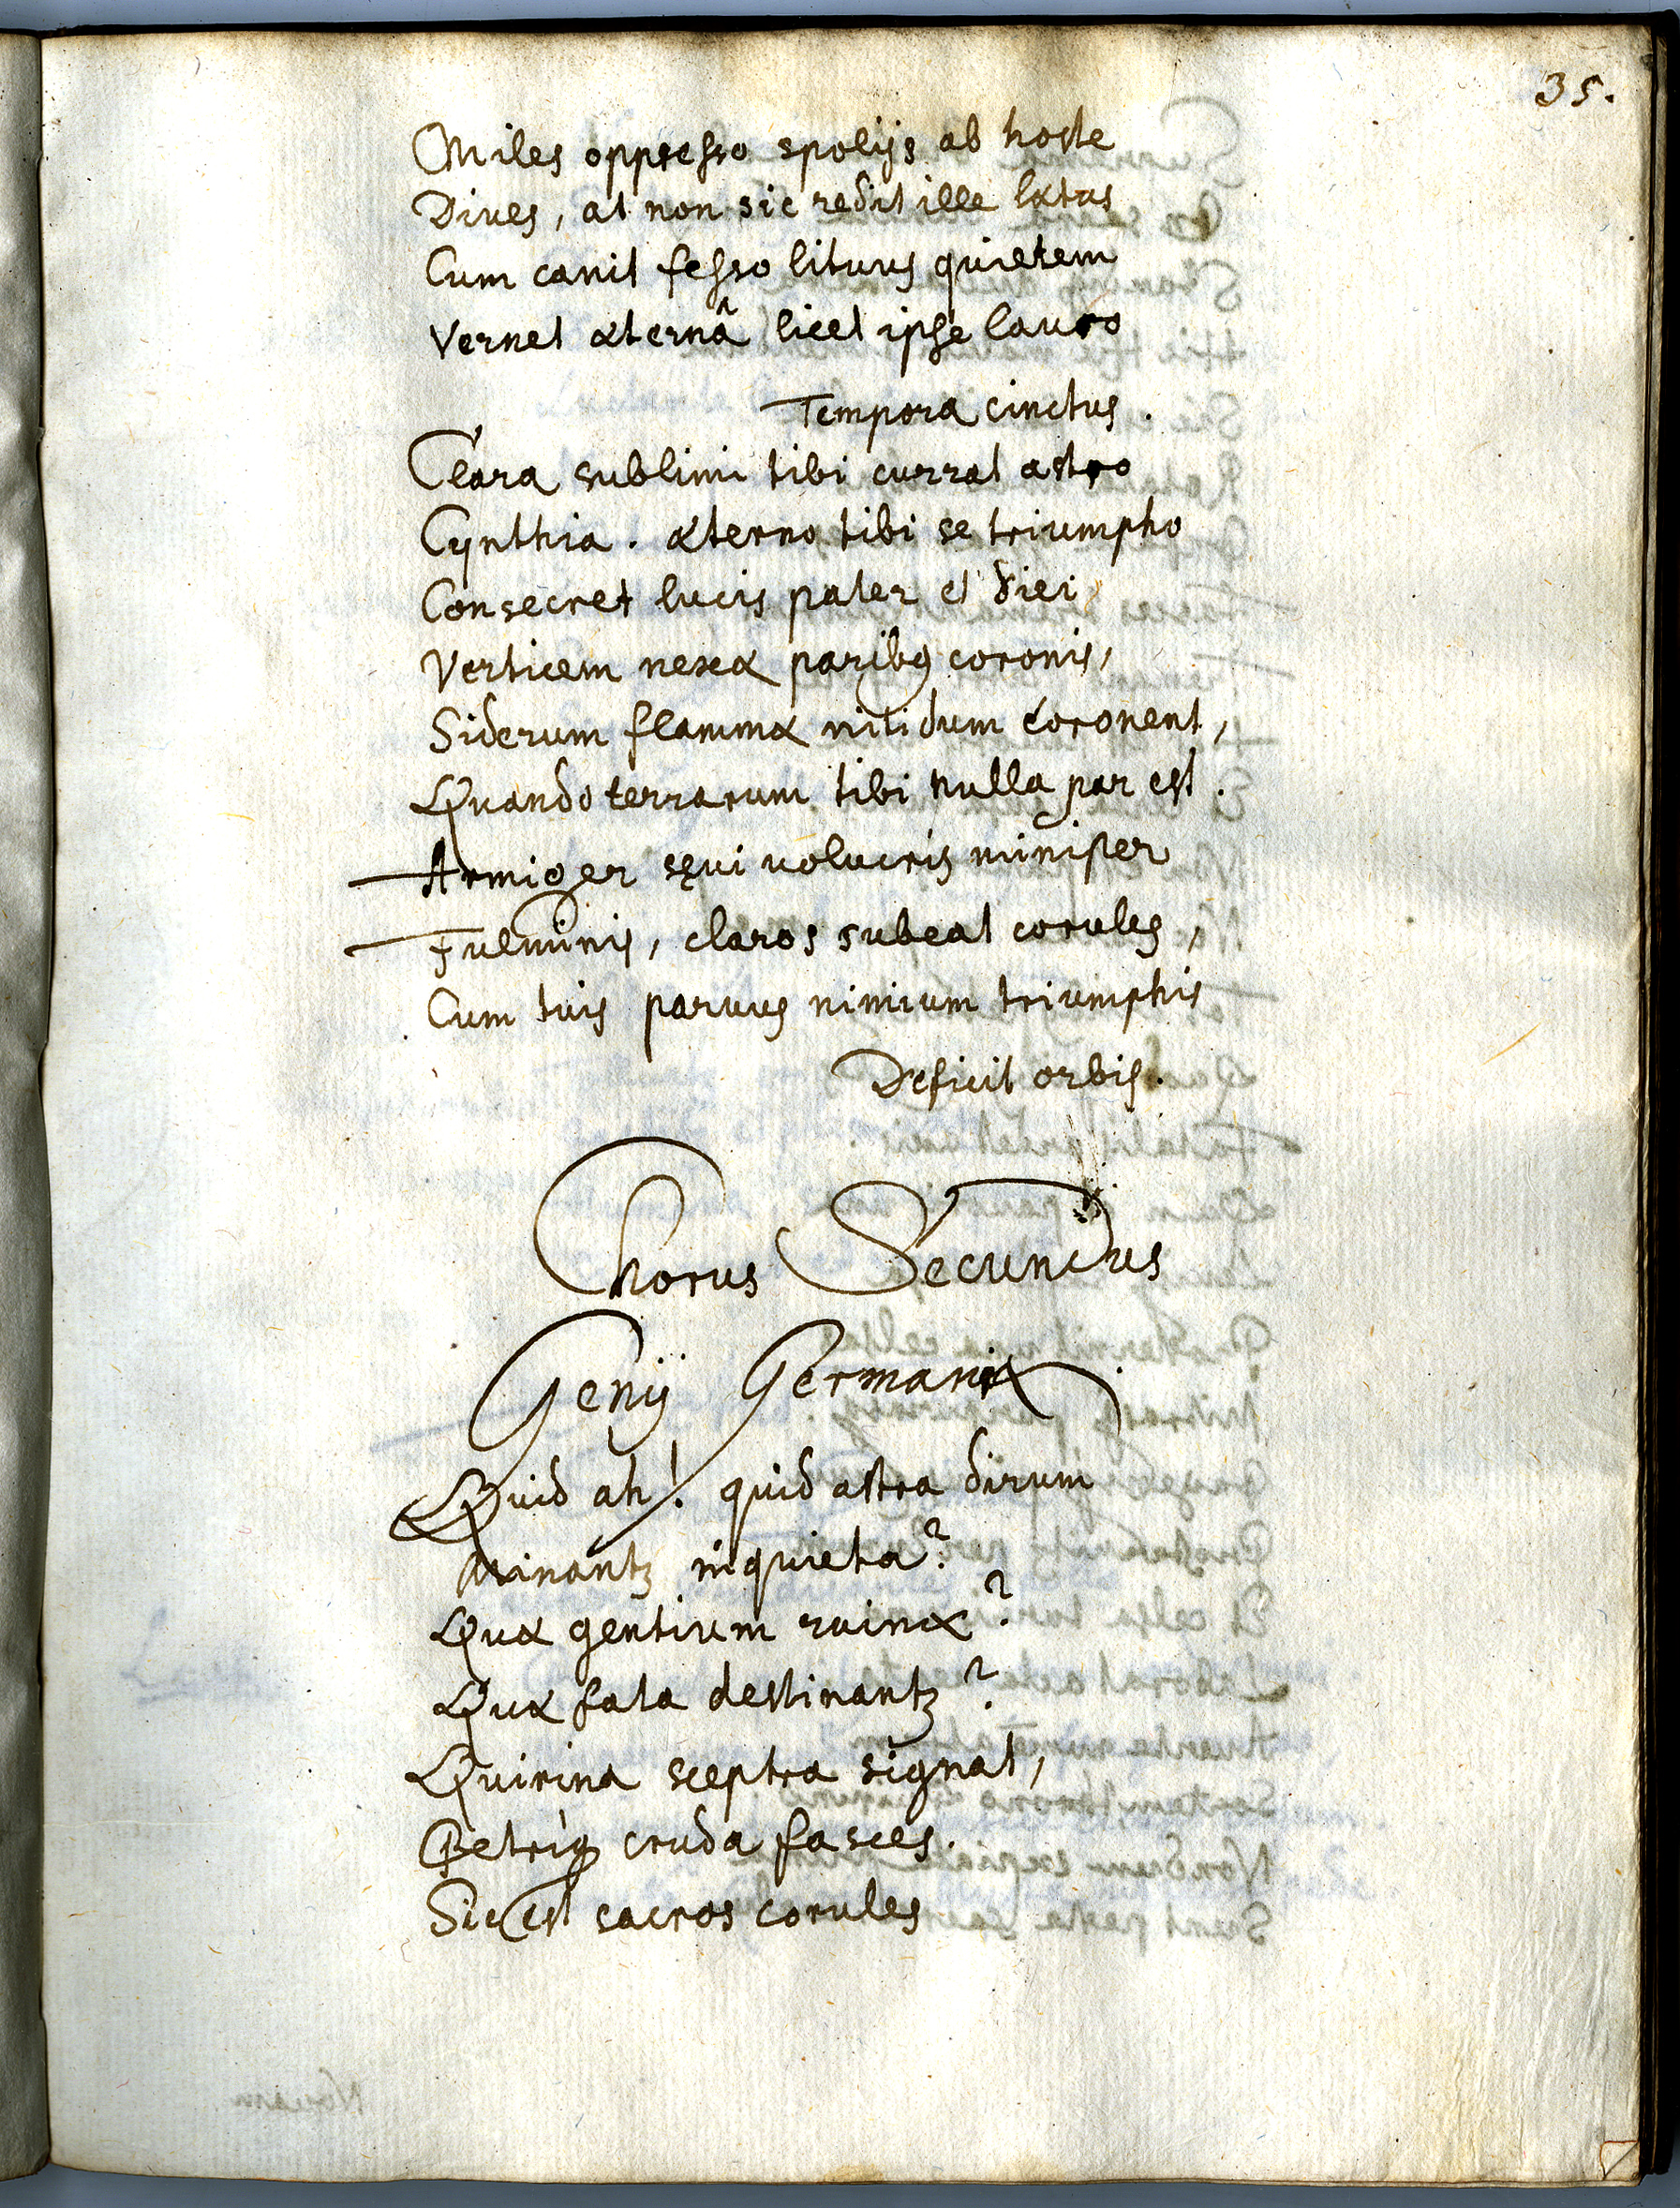 35.
Miles oppresso spolijs ab hoste
Dives, at non sic redit ille lætus
Cum canit fesso lituus quietem
Vernet æternâ licet ipse lauro
Tempora cinctus.
Clara sublimi tibi currat astro
Cynthia. æterno tibi se triumpho
Consecret lucis pater et diei
Verticem nexæ paribq coronis,
Siderum flammæ nitidum coronent,
Quando terrarum tibi nulla par est.
Armiger sęvi volucris minister
Fulminis, claros subeat corules,
Cum tuis parvus nimium triumphis
Deficit orbis.
Chorus Secundus
Genij Germaniæ
Quid ah! quid astra dirum
Minantz inquieta?
Quæ gentium ruinæ?
Quæ fata destinantz?
Quirina sceptra signat,
Petriq cruda fasces.
Sic est sacros corules